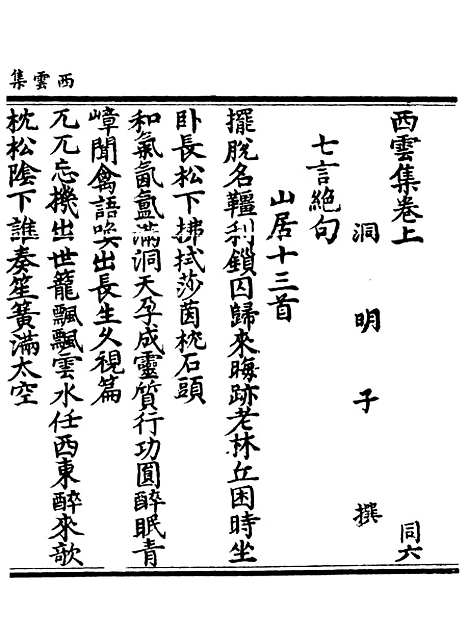 西雲集
西雲集卷上 同六
洞明子撰
七言絕句
山居十三首
擺脫名韁利鎖囚歸來晦跡老林丘困時坐
卧長松下拂拭莎茵枕石頭
和氣氤氳滿洞天孕成靈質行功圓醉眠青
嶂聞禽語喚出長生久視篇
兀兀忘機出世籠飄飄雲水任西東醉來歌
枕松陰下誰奏笙簧滿太空